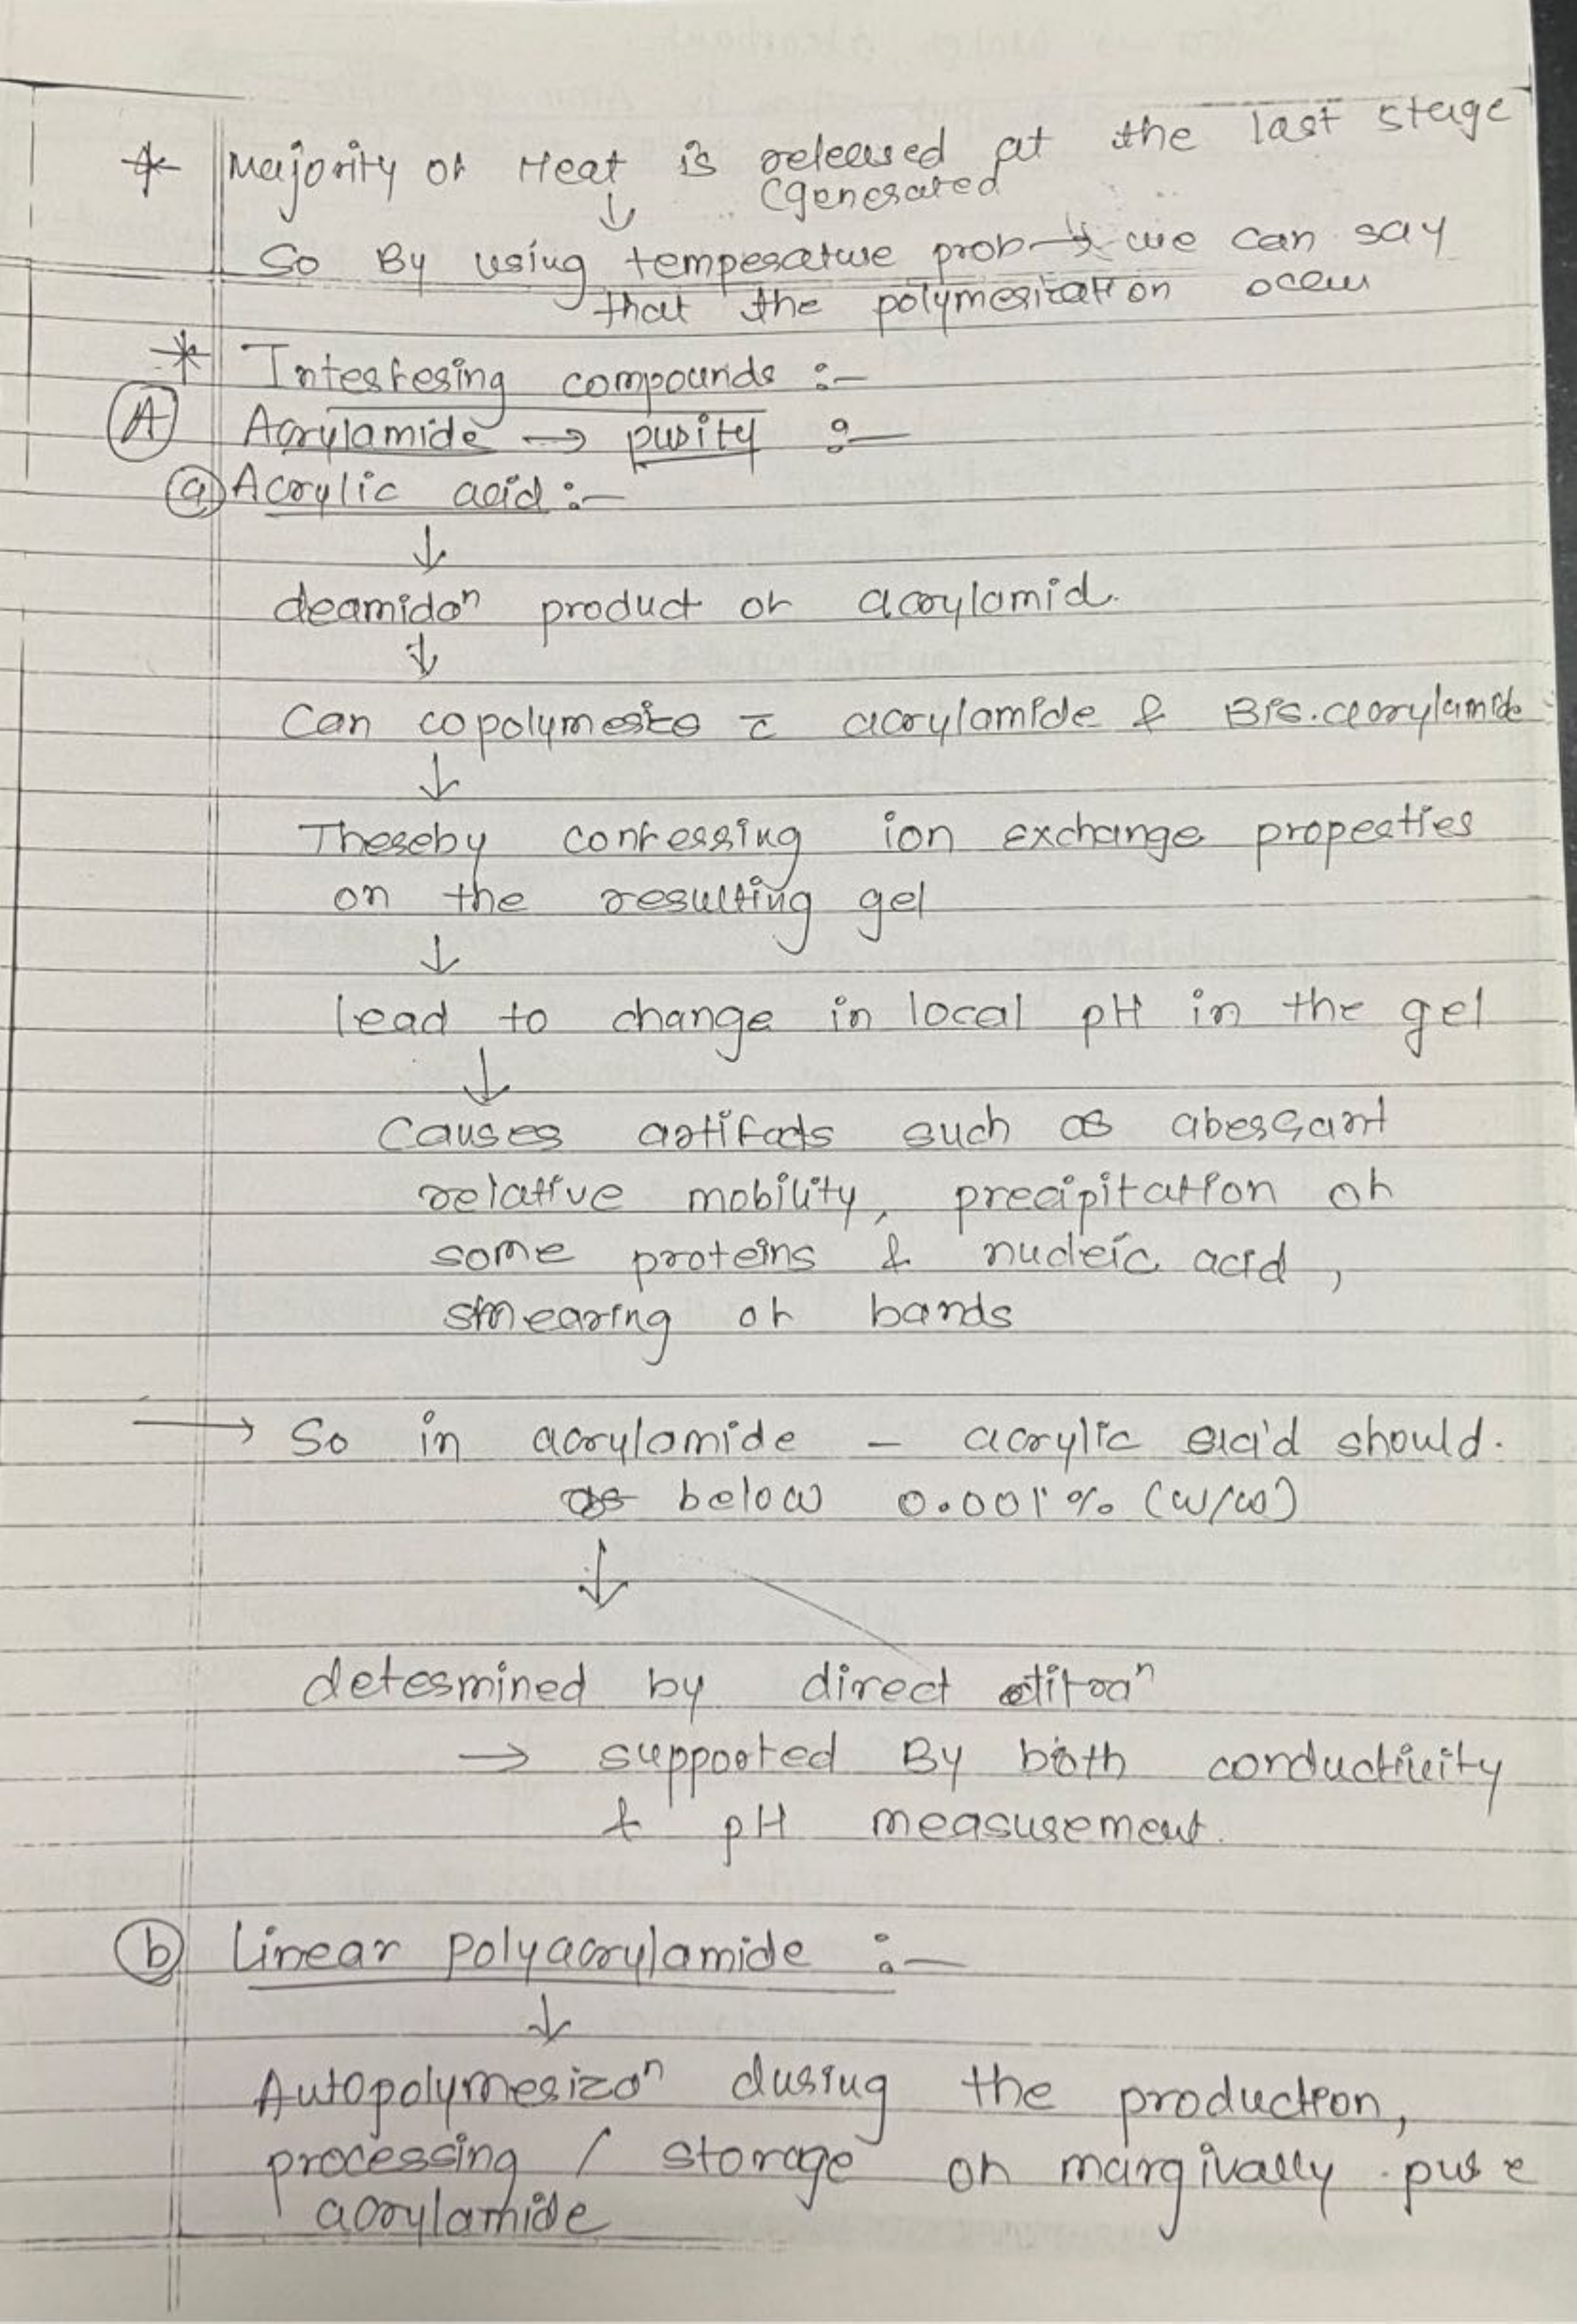 * Majority of Heat is released at the last stage
(generated
↓
So By using temperature prob → we can say
that the polymerization occur
* Interfering compounds :-
(A) Acrylamide → purity :-
(a) Acrylic acid :-
↓
deamidoⁿ product of acrylamid.
↓
Can copolymerize c̄ acrylamide & Bis.acrylamide
↓
Thereby conferring ion exchange properties
on the resulting gel
↓
lead to change in local pH in the gel
↓
Causes artifacts such as aberrant
relative mobility, precipitation of
some proteins & nucleic acid,
smearing of bands
→ So in acrylamide - acrylic acid should.
below 0.001% (w/w)
↓
determined by direct titraⁿ
→ supported By both conductivity
& pH measurement.
(b) Linear polyacrylamide :-
↓
Autopolymerizaⁿ during the production,
processing / storage of marginally pure
acrylamide